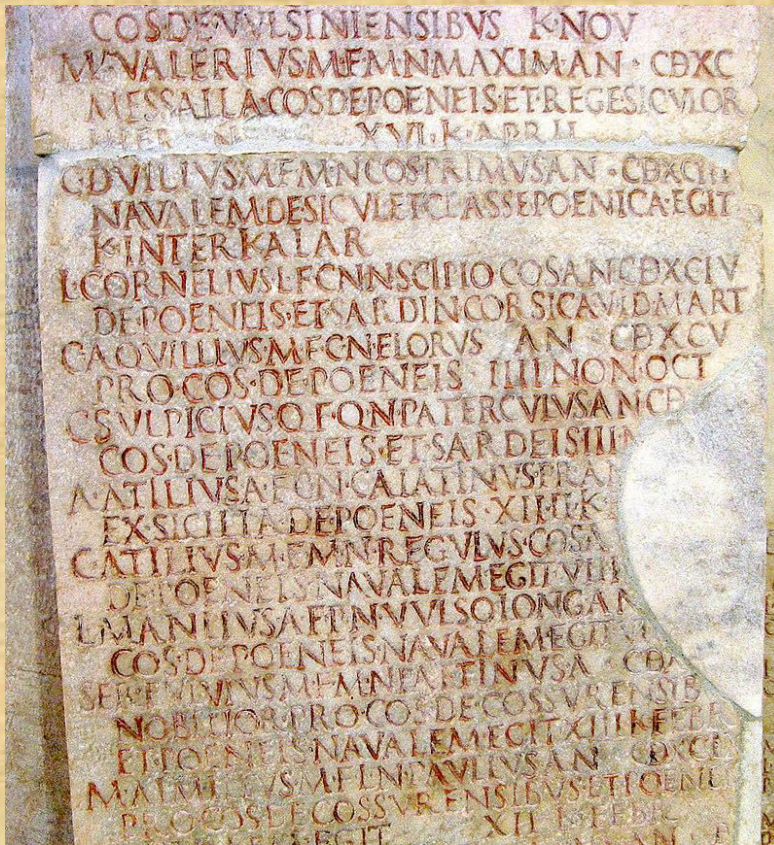 COS·DE·VVLSINIENSIBVS K·NOV
M·VALERIVS·M·F·M·N·MAXIM·AN · CDXC
MESSALLA·COS·DE·POENEIS·ET·REGE·SICVLOR
XVI·K·APRIL
C·DVILIVS·M·F·M·N·COS·PRIMVS·AN · CDXCIII
NAVALEM·DE·SICVL·ET·CLASSE·POENICA·EGIT
K·INTERKALAR
L·CORNELIVS·L·F·CN·N·SCIPIO COS·AN CDXCIV
DE·POENEIS·ET·SARDIN·CORSICA·V·ID·MART
C·AQVILLIVS·M·F·C·N·FLORVS AN CDXCV
PRO·COS·DE·POENEIS IIII NON·OCT
C·SVLPICIVS·Q·F·Q·N·PATERCVLVS·AN CD
COS·DE·POENEIS·ET·SARDEIS III
A·ATILIVS·A·F·C·N·CALATINVS·PR·AN
EX·SICILIA·DE·POENEIS·XIIII·K
C·ATILIVS·M·F·M·N·REGVLVS·COS·A
DE·POENEIS·NAVALEM·EGIT·VIII
L·MANLIVS·A·F·P·N·VVLSO·LONG·AN
COS·DE·POENEIS·NAVALEM·EGIT
SER·FVLVIVS·M·F·M·N·PAETINVS·A CD
NOBILIOR·PRO·COS·DE·COSSVRENSIB
ET·POENEIS·NAVALEM·EGIT XIII K·FEBR
M·AIMILIVS·M·F·L·N·PAVLLVS·AN CDXCI
PRO·COS·DE·COSSVRENSIBVS·ET·POENEI
EGIT XII K·FEBR